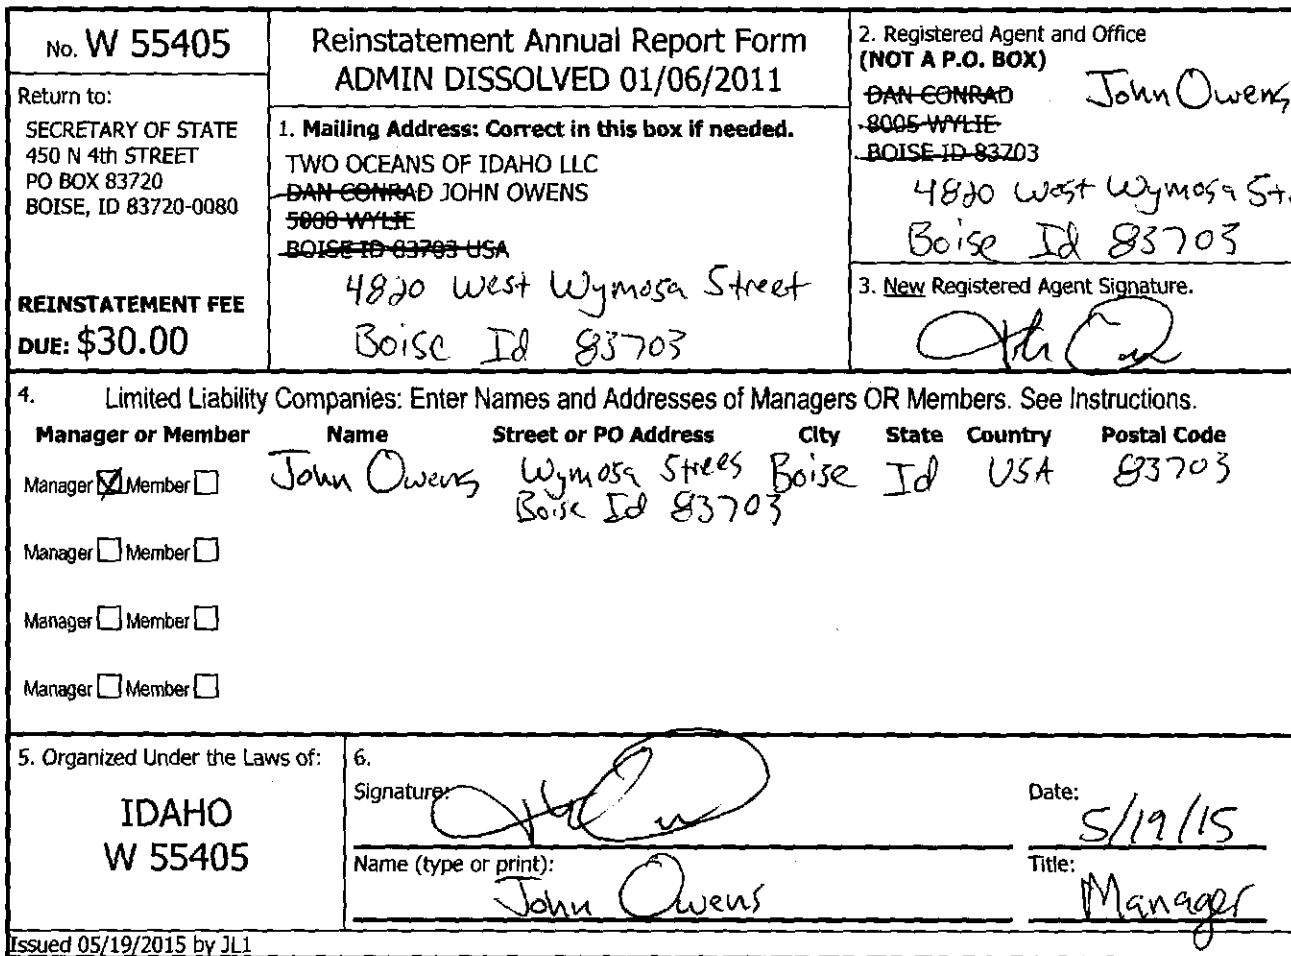 No. W 55405
Return to:
SECRETARY OF STATE
450 N 4th STREET
PO BOX 83720
BOISE, ID 83720-0080
REINSTATEMENT FEE
DUE: $30.00
Reinstatement Annual Report Form
ADMIN DISSOLVED 01/06/2011
1. Mailing Address: Correct in this box if needed.
TWO OCEANS OF IDAHO LLC
DAN CONRAD JOHN OWENS
5000 WYLIE
BOISE ID 83703 USA
4820 West Wymosa Street
Boise Id 83703
2. Registered Agent and Office
(NOT A P.O. BOX)
John Owens
DAN CONRAD
8005 WYLIE
BOISE ID 83703
4820 West Wymosa St.
Boise Id 83703
3. New Registered Agent Signature.
4. Limited Liability Companies: Enter Names and Addresses of Managers OR Members. See Instructions.
Manager or Member Name Street or PO Address City State Country Postal Code
Manager Member John Owens Wymosa Street Boise Id USA 83703
Boise Id 83703
Manager Member
Manager Member
Manager Member
5. Organized Under the Laws of:
IDAHO
W 55405
6.
Signature:
Date: 5/19/15
Name (type or print): John Owens
Title: Manager
Issued 05/19/2015 by JL1